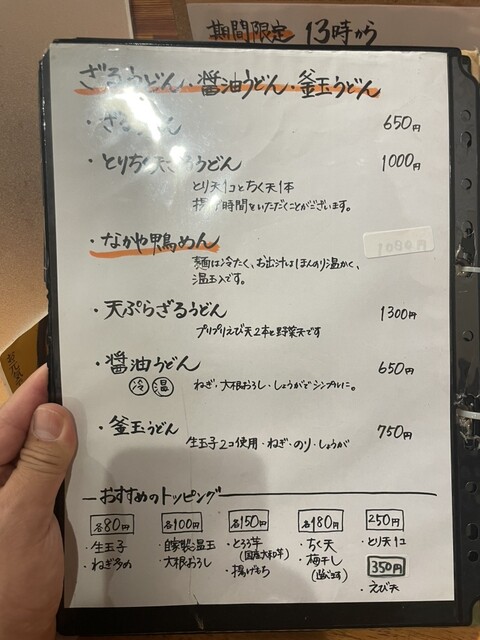 期間限定 13時から
ざるうどん・醤油うどん・釜玉うどん
・ざるうどん 650円
・とりちく天ざるうどん 1000円
とり天1コとちく天1本
揚げ時間をいただくことがございます。
・なかや鴨めん 1080円
麺は冷たく、お出汁はほんのり温かく、
温玉入です。
・天ぷらざるうどん 1300円
プリプリえび天2本と野菜天です
・醤油うどん 650円
冷 温 ねぎ・大根おろし・しょうがでシンプルに。
・釜玉うどん 750円
生玉子2コ使用・ねぎ・のり・しょうが
おすすめのトッピング
各80円 各100円 各150円 各180円 250円
・生玉子 ・自家製温玉 ・とろろ芋 ・ちく天 ・とり天1コ
・ねぎ多め ・大根おろし (国産大和芋) ・梅干し 350円
・揚げもち ・えび天